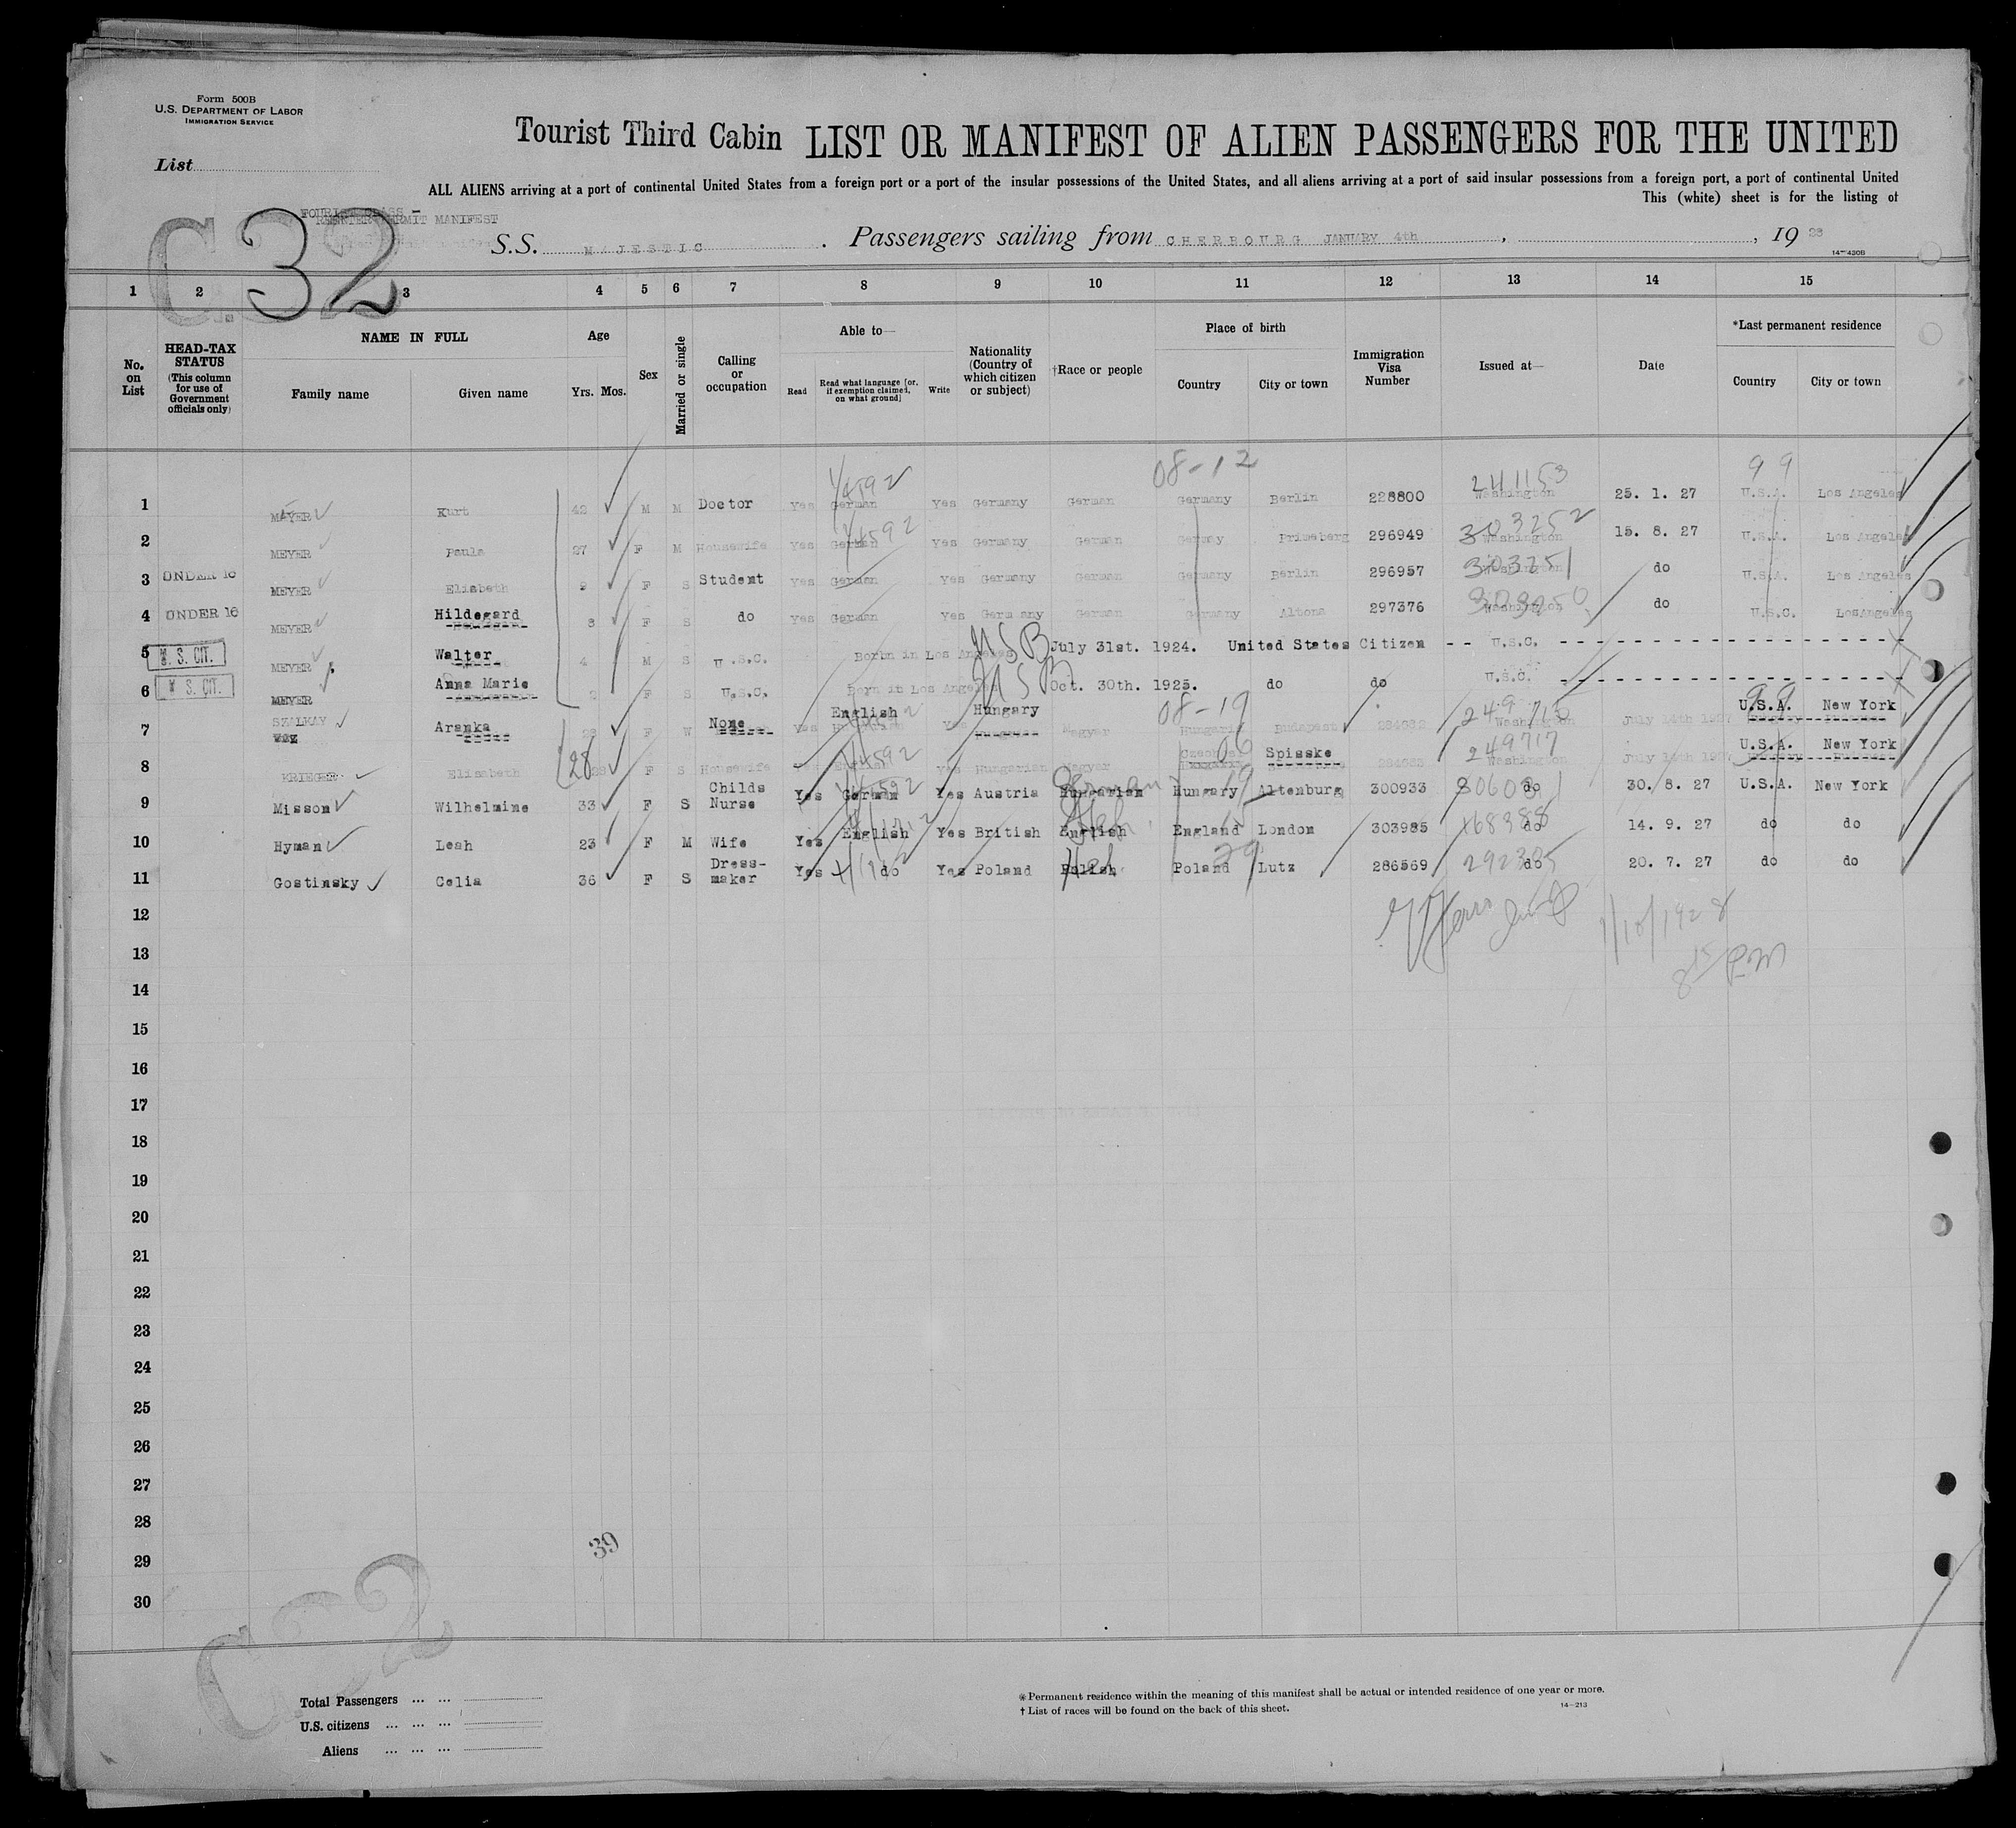 Form 500B
U.S. DEPARTMENT OF LABOR
IMMIGRATION SERVICE
List
Tourist Third Cabin LIST OR MANIFEST OF ALIEN PASSENGERS FOR THE UNITED
ALL ALIENS arriving at a port of continental United States from a foreign port or a port of the insular possessions of the United States, and all aliens arriving at a port of said insular possessions from a foreign port, a port of continental United
This (white) sheet is for the listing of
TOURIST CLASS -
REENTER PERMIT MANIFEST
C.32
S.S. MAJESTIC . Passengers sailing from CHERBOURG JANUARY 4th , , 19 28
14-430B
1 2 3 4 5 6 7 8 9 10 11 12 13 14 15
No. on List
HEAD-TAX STATUS (This column for use of Government officials only)
NAME IN FULL
Family name Given name
Age
Yrs. Mos.
Sex
Married or single
Calling or occupation
Able to—
Read Read what language [or, if exemption claimed, on what ground] Write
Nationality (Country of which citizen or subject)
†Race or people
Place of birth
Country City or town
Immigration Visa Number
Issued at—
Date
*Last permanent residence
Country City or town
4592 08-12 241153 99
1 MEYER Kurt 42 M M Doctor Yes German Yes Germany German Germany Berlin 228800 Washington 25. 1. 27 U.S.A. Los Angeles
4592 303252
2 MEYER Paula 27 F M Housewife Yes German Yes Germany German Germany 296949 Washington 15. 8. 27 U.S.A. Los Angeles
303251
3 UNDER 16 MEYER Elisbeth 9 F S Student Yes German Yes Germany German Germany Berlin 296957 Washington do U.S.A. Los Angeles
303250
4 UNDER 16 MEYER Hildegard 8 F S do Yes German Yes Germany German Germany Altona 297376 Washington do U.S.C. LosAngeles
5 U. S. CIT. MEYER Walter 4 M S U.S.C. Born in Los Angeles USB July 31st. 1924. United States Citizen -- U.S.C.
6 U. S. CIT. MEYER Anna Marie 2 F S U.S.C. Born in Los Angeles USB Oct. 30th. 1925. do do U.S.C.
08-19 249716 99
7 SZALKAY Aranka F W None Yes English Yes Hungary Magyar Hungary Budapest Washington July 14th 1927 U.S.A. New York
4592 06 249717
8 KRIEGER Elisabeth 28 F S Housewife English Yes Hungarian Magyar Spisske Washington July 14th 1927 U.S.A. New York
4592 German 19
9 Misson Wilhelmine 33 F S Childs Nurse Yes German Yes Austria Hungarian Hungary Altenburg 300933 do 30. 8. 27 U.S.A. New York
Heb. 168388
10 Hyman Leah 23 F M Wife Yes English Yes British English England London 303985 do 14. 9. 27 do do
Heb 29 292305
11 Gostinsky Celia 36 F S Dress-maker Yes do Yes Poland Polish Poland Lutz 286569 do 20. 7. 27 do do
12
1/10/1928
13
8 15 PM
14
15
16
17
18
19
20
21
22
23
24
25
26
27
28
39
29
30
C22
Total Passengers ... ...
U.S. citizens ... ... ...
Aliens ... ... ...
*Permanent residence within the meaning of this manifest shall be actual or intended residence of one year or more.
† List of races will be found on the back of this sheet.
14-213